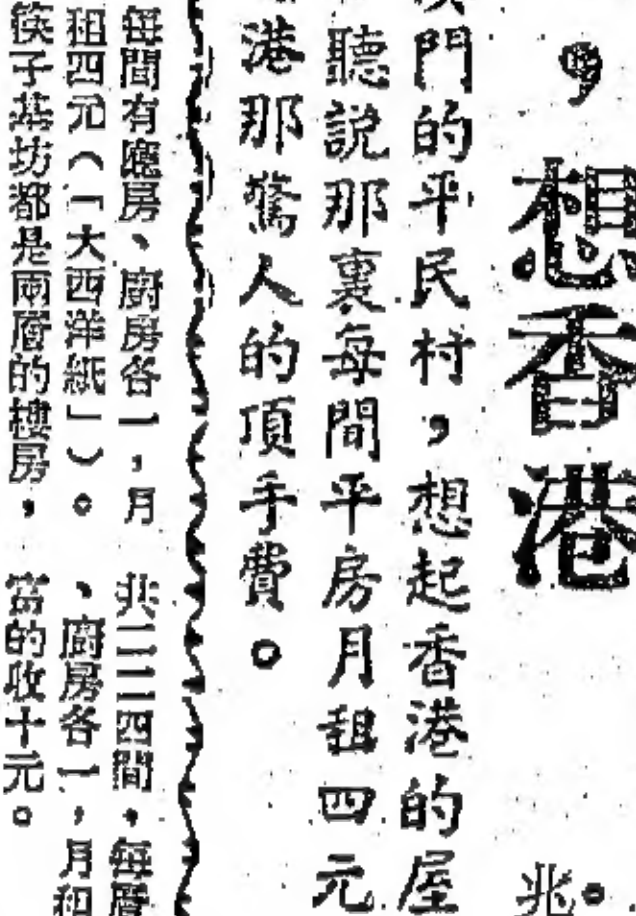 ，想香港
兆。
門的平民村，想起香港的屋
聽說那裏每間平房月租四元
港那驚人的頂手費。
每間有廳房、廚房各一，月
租四元（「大西洋紙」）。
筷子基坊都是兩層的樓房，
共間，每層
、廚房各一，月租
富的收十元。